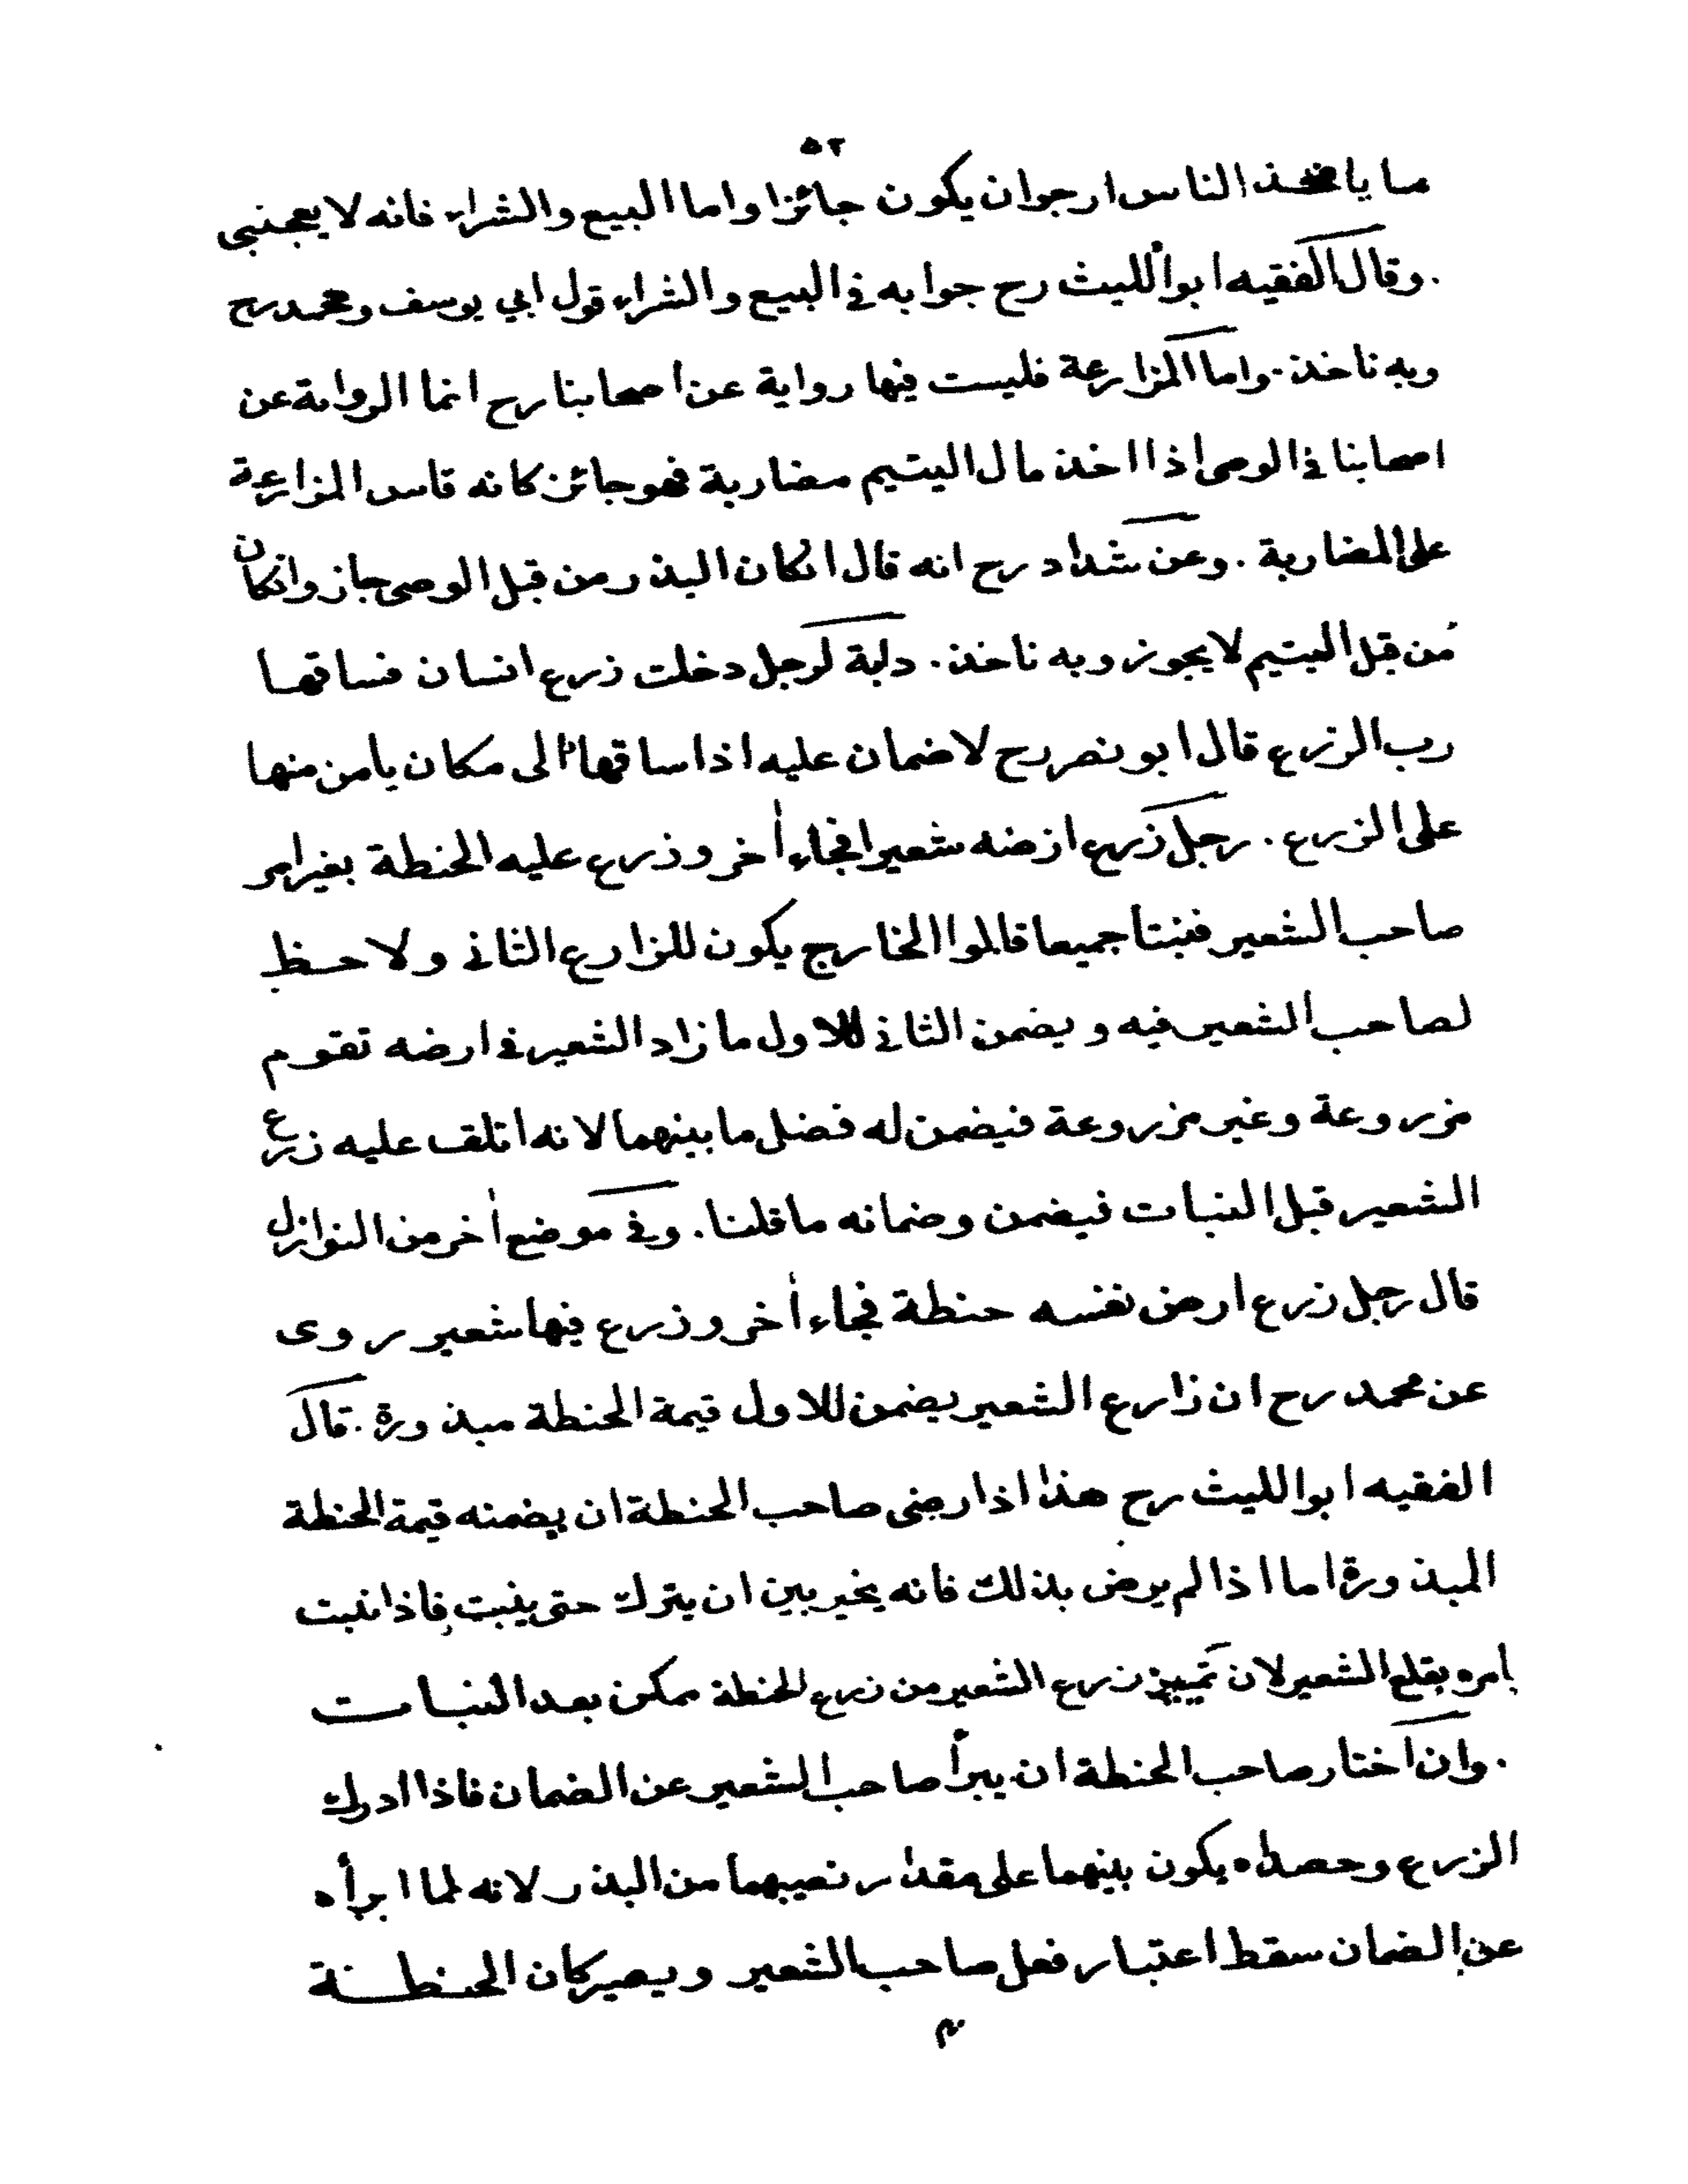 ٥٢
ما ياخذ الناس ارجوان يكون جائزا واما البيع والشراء فانه لا يعجبنى
. وقال الفقيه ابو الليث رح جوابه في البيع والشراء قول ابي يوسف ومحمد رح
وبه ناخذ . واما المزارعة فليست فيها رواية عن اصحابنا رح انما الرواية عن
اصحابنا في الوصى اذا اخذ مال اليتيم مضاربة فهو جائز كانه قاس المزارعة
على المضاربة . وعن شداد رح انه قال انكان البذر من قبل الوصى جاز وانكان
من قبل اليتيم لا يجوز وبه ناخذ . دابة لرجل دخلت زرع انسان فساقها
رب الزرع قال ابو نصر رح لا ضمان عليه اذا ساقها الى مكان يامن منها
على الزرع . رجل زرع ارضه شعيرا فجاء أخر وزرع عليه الحنطة بغير امر
صاحب الشعير فنبتا جميعا قالوا الخارج يكون للزارع الثانى ولا حظ
لصاحب الشعير فيه ويضمن الثانى للاول ما زاد الشعير في ارضه تقوم
مزروعة وغير مزروعة فيضمن له فضل ما بينهما لانه اتلف عليه زرع
الشعير قبل النبات فيضمن وضمانه ما قلنا . وفي موضع أخر من النوازل
قال رجل زرع ارض نفسه حنطة فجاء أخر وزرع فيها شعير روى
عن محمد رح ان زارع الشعير يضمن للاول قيمة الحنطة مبذورة . قال
الفقيه ابو الليث رح هذا اذا رضى صاحب الحنطة ان يضمنه قيمة الحنطة
المبذورة اما اذا لم يرض بذلك فانه يخير بين ان يترك حتى ينبت فاذا نبت
يامره بقلع الشعير لان تمييز زرع الشعير من زرع الحنطة ممكن بعد النبات
. وان اختار صاحب الحنطة ان يبرأ صاحب الشعير عن الضمان فاذا ادرك
الزرع وحصداه يكون بينهما على مقدار نصيبهما من البذر لانه لما ابرأه
عن الضمان سقط اعتبار فعل صاحب الشعير ويصير كان الحنطة